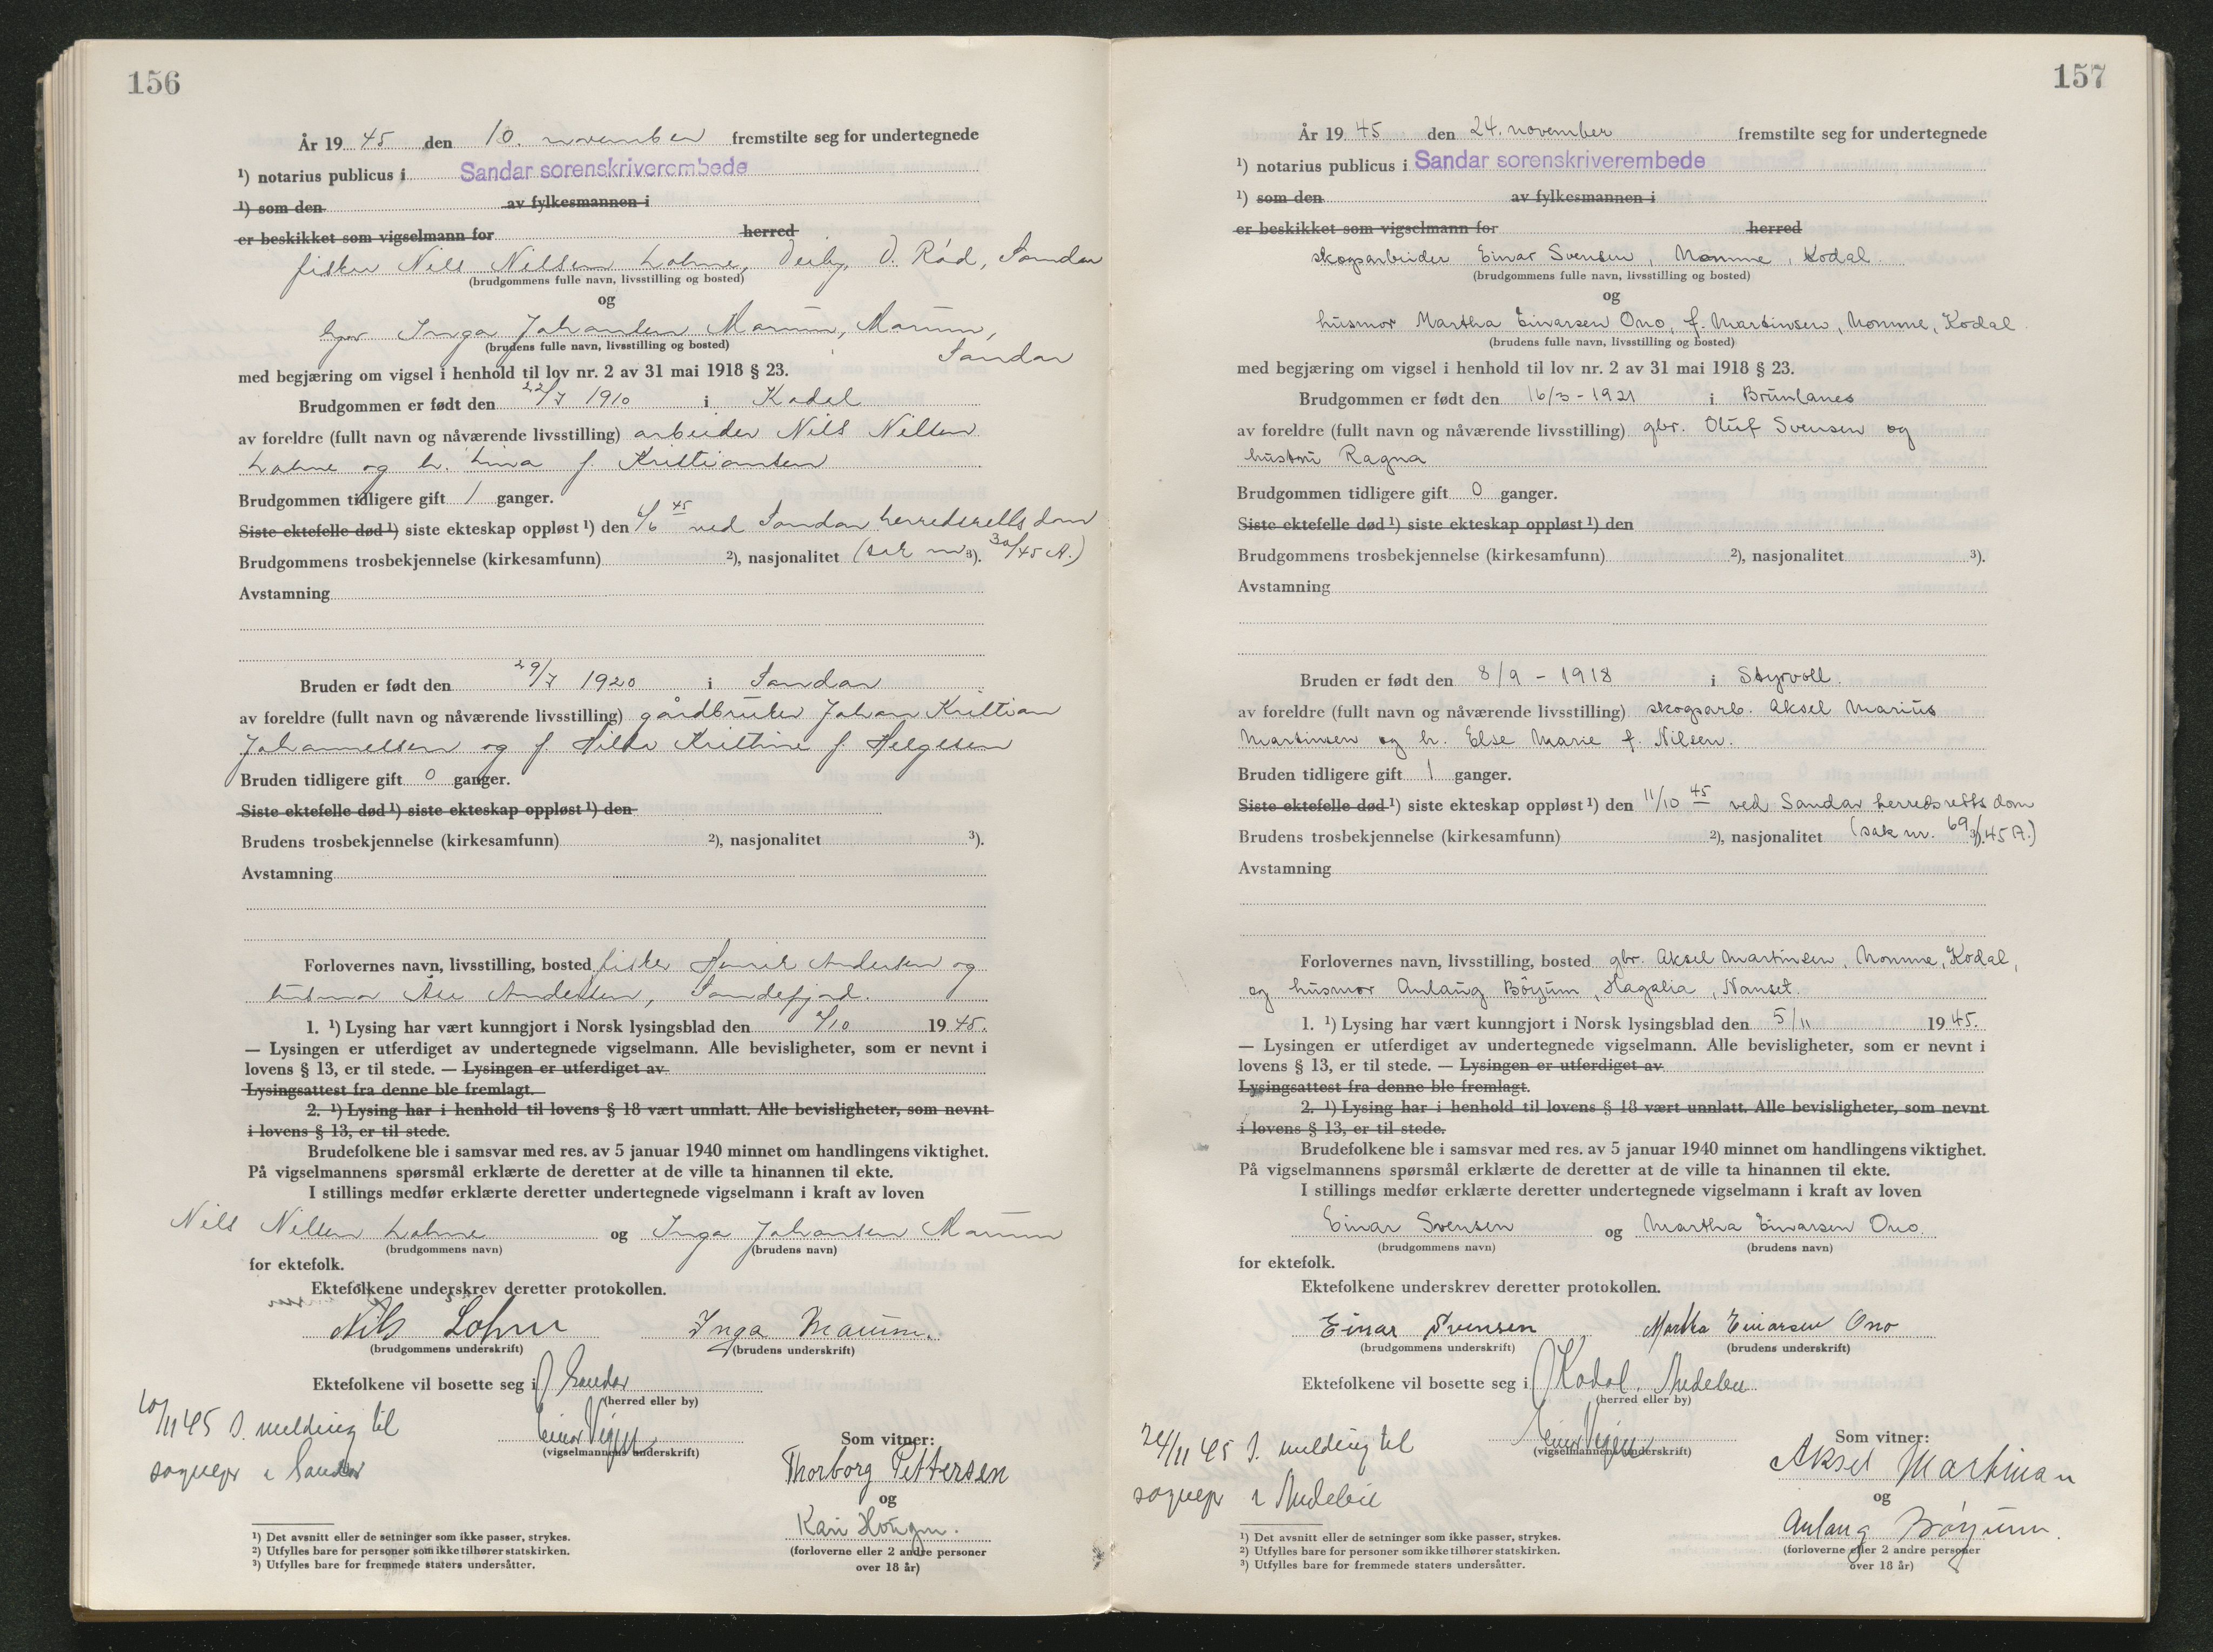 156
År 19 45 den 10. november fremstilte seg for undertegnede
¹) notarius publicus i Sandar sorenskriverembede
¹) som den av fylkesmannen i
er beskikket som vigselmann for herred
fisker Nils Nilsen Lohne, Ø. Rød, Sandar
(brudgommens fulle navn, livsstilling og bosted)
og
Inga Johansen Marum, Marum,
(brudens fulle navn, livsstilling og bosted)
Sandar
med begjæring om vigsel i henhold til lov nr. 2 av 31 mai 1918 § 23.
Brudgommen er født den 22/7 1910 i Kodal
av foreldre (fullt navn og nåværende livsstilling) arbeider Nils Nilsen
Lohne og h. Lina f. Kristiansen
Brudgommen tidligere gift 1 ganger.
Siste ektefelle død ¹) siste ekteskap oppløst ¹) den /6 45 ved Sandar herredsretts dom
Brudgommens trosbekjennelse (kirkesamfunn) ²), nasjonalitet (sak nr ³). 30/45 A.)
Avstamning
Bruden er født den 29/7 1920 i Sandar
av foreldre (fullt navn og nåværende livsstilling) gårdbruker Johan Kristian
Johannessen og f. Hilda Kristine f. Helgesen
Bruden tidligere gift 0 ganger.
Siste ektefelle død ¹) siste ekteskap oppløst ¹) den
Brudens trosbekjennelse (kirkesamfunn) ²), nasjonalitet ³).
Avstamning
Forlovernes navn, livsstilling, bosted fisker Henrik Andersen og
husmor Åse Andersen, Sandefjord.
1. ¹) Lysing har vært kunngjort i Norsk lysingsblad den /10 19 45.
— Lysingen er utferdiget av undertegnede vigselmann. Alle bevisligheter, som er nevnt i
lovens § 13, er til stede. — Lysingen er utferdiget av
Lysingsattest fra denne ble fremlagt.
2. ¹) Lysing har i henhold til lovens § 18 vært unnlatt. Alle bevisligheter, som nevnt
i lovens § 13, er til stede.
Brudefolkene ble i samsvar med res. av 5 januar 1940 minnet om handlingens viktighet.
På vigselmannens spørsmål erklærte de deretter at de ville ta hinannen til ekte.
I stillings medfør erklærte deretter undertegnede vigselmann i kraft av loven
Nils Nilsen Lohne og Inga Johansen Marum
(brudgommens navn) (brudens navn)
for ektefolk.
Ektefolkene underskrev deretter protokollen.
Nils Lohne Inga Marum.
(brudgommens underskrift) (brudens underskrift)
Ektefolkene vil bosette seg i Sandar
(herred eller by)
10/11 45 S. melding til
sognepr i Sandar
Einar Vigen
(vigselmannens underskrift)
Som vitner:
Thorborg Pettersen
og
Kari
(forloverne eller 2 andre personer
over 18 år)
¹) Det avsnitt eller de setninger som ikke passer, strykes.
²) Utfylles bare for personer som ikke tilhører statskirken.
³) Utfylles bare for fremmede staters undersåtter.
157
År 19 45 den 24. november fremstilte seg for undertegnede
¹) notarius publicus i Sandar sorenskriverembede
¹) som den av fylkesmannen i
er beskikket som vigselmann for herred
skogsarbeider Einar Svensen, Nomme, Kodal.
(brudgommens fulle navn, livsstilling og bosted)
og
husmor Martha Einarsen Ono, f. Martinsen, Nomme, Kodal.
(brudens fulle navn, livsstilling og bosted)
med begjæring om vigsel i henhold til lov nr. 2 av 31 mai 1918 § 23.
Brudgommen er født den 16/3 - 1921 i Brunlanes
av foreldre (fullt navn og nåværende livsstilling) gbr. Oluf Svensen og
hustru Ragna
Brudgommen tidligere gift 0 ganger.
Siste ektefelle død ¹) siste ekteskap oppløst ¹) den
Brudgommens trosbekjennelse (kirkesamfunn) ²), nasjonalitet ³).
Avstamning
Bruden er født den 8/9 - 1918 i Styrvoll.
av foreldre (fullt navn og nåværende livsstilling) skogsarb. Aksel Marius
Martinsen og h. Else Marie f. Nilsen.
Bruden tidligere gift 1 ganger.
Siste ektefelle død ¹) siste ekteskap oppløst ¹) den 11/10 45 ved Sandar herredsretts dom
Brudens trosbekjennelse (kirkesamfunn) ²), nasjonalitet (sak nr. 69 ³)./45 A.)
Avstamning
Forlovernes navn, livsstilling, bosted gbr. Aksel Martinsen, Nomme, Kodal,
og husmor Anlaug Böyum, Hagalia, Nanset.
1. ¹) Lysing har vært kunngjort i Norsk lysingsblad den 5/11 19 45.
— Lysingen er utferdiget av undertegnede vigselmann. Alle bevisligheter, som er nevnt i
lovens § 13, er til stede. — Lysingen er utferdiget av
Lysingsattest fra denne ble fremlagt.
2. ¹) Lysing har i henhold til lovens § 18 vært unnlatt. Alle bevisligheter, som nevnt
i lovens § 13, er til stede.
Brudefolkene ble i samsvar med res. av 5 januar 1940 minnet om handlingens viktighet.
På vigselmannens spørsmål erklærte de deretter at de ville ta hinannen til ekte.
I stillings medfør erklærte deretter undertegnede vigselmann i kraft av loven
Einar Svensen og Martha Einarsen Ono.
(brudgommens navn) (brudens navn)
for ektefolk.
Ektefolkene underskrev deretter protokollen.
Einar Svensen Martha Einarsen Ono
(brudgommens underskrift) (brudens underskrift)
Ektefolkene vil bosette seg i Kodal, Andebu
(herred eller by)
24/11 45 S. melding til
sognepr i Andebu
Einar Vigen
(vigselmannens underskrift)
Som vitner:
Aksel Martinsen
og
Anlaug Böyum.
(forloverne eller 2 andre personer
over 18 år)
¹) Det avsnitt eller de setninger som ikke passer, strykes.
²) Utfylles bare for personer som ikke tilhører statskirken.
³) Utfylles bare for fremmede staters undersåtter.